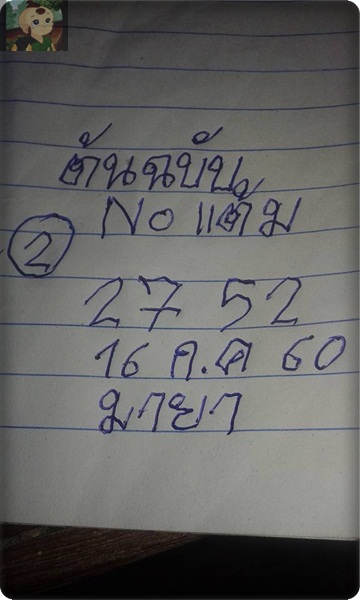 ต้นฉบับ
No แต้ม
2
27 52
16 ก.ค 60
มายา